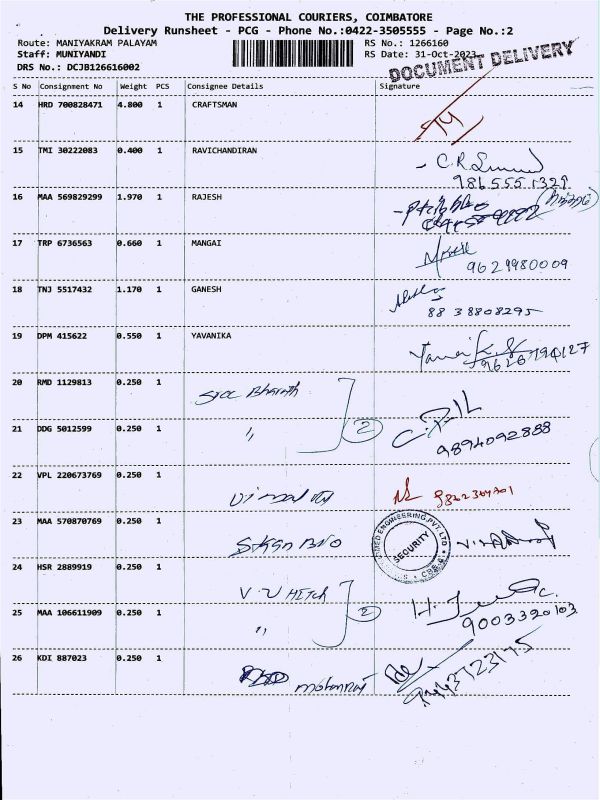 THE PROFESSIONAL COURIERS, COIMBATORE
Delivery Runsheet - PCG - Phone No.:0422-3505555 - Page No.:2
Route: MANIYAKRAM PALAYAM RS No.: 1266160
Staff: MUNIYANDI RS Date: 31-Oct-2023
DRS No.: DCJB126616002 DOCUMENT DELIVERY
S No Consignment No Weight PCS Consignee Details Signature
14 HRD 700828471 4.800 1 CRAFTSMAN
15 TMI 30222083 0.400 1 RAVICHANDIRAN
16 MAA 569829299 1.970 1 RAJESH
17 TRP 6736563 0.660 1 MANGAI
9629980009
18 TNJ 5517432 1.170 1 GANESH
8838808295
19 DPM 415622 0.550 1 YAVANIKA
20 RMD 1129813 0.250 1
21 DDG 5012599 0.250 1 " 2
9894092888
22 VPL 220673769 0.250 1
23 MAA 570870769 0.250 1
ENGINEERING PVT. LTD
SECURITY
24 HSR 2889919 0.250 1
25 MAA 106611909 0.250 1 " 2
9003320103
26 KDI 887023 0.250 1 mohanraj